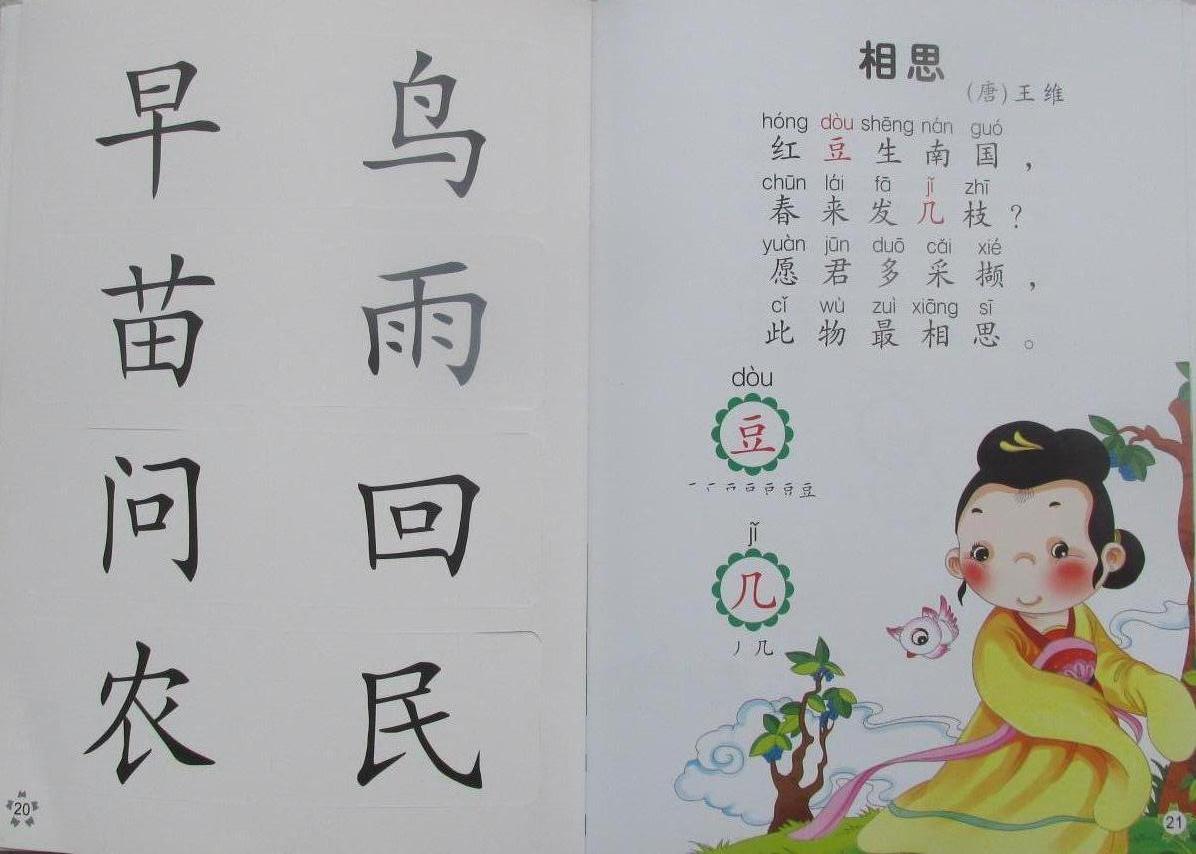 早 鸟
苗 雨
问 回
农 民
20
相思
(唐)王维
hóng dòu shēng nán guó
红豆生南国，
chūn lái fā jǐ zhī
春来发几枝？
yuàn jūn duō cǎi xié
愿君多采撷，
cǐ wù zuì xiāng sī
此物最相思。
dòu
豆
豆
jǐ
几
丿 几
21